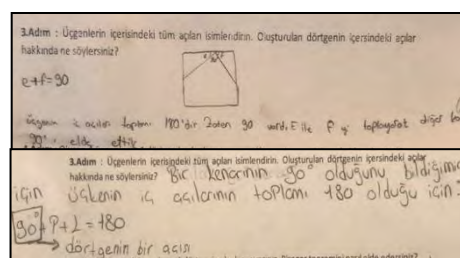 3.Adım : Üçgenlerin içerisindeki tüm açıları isimlendirin. Oluşturulan dörtgenin içersindeki açılar
hakkında ne söylersiniz?
e+f=90
üçgenin iç açıları toplamı 180'dir. Zaten 90 vardı, E ile F yi toplayarak diğer
90° elde ettik
3.Adım : Üçgenlerin içerisindeki tüm açıları isimlendirin. Oluşturulan dörtgenin içersindeki açılar
hakkında ne söylersiniz? Bir kenarının 90° olduğunu bildiğimiz
için üçkenin iç açılarının toplamı 180 olduğu için
90°+P+L=180
dörtgenin bir açısı